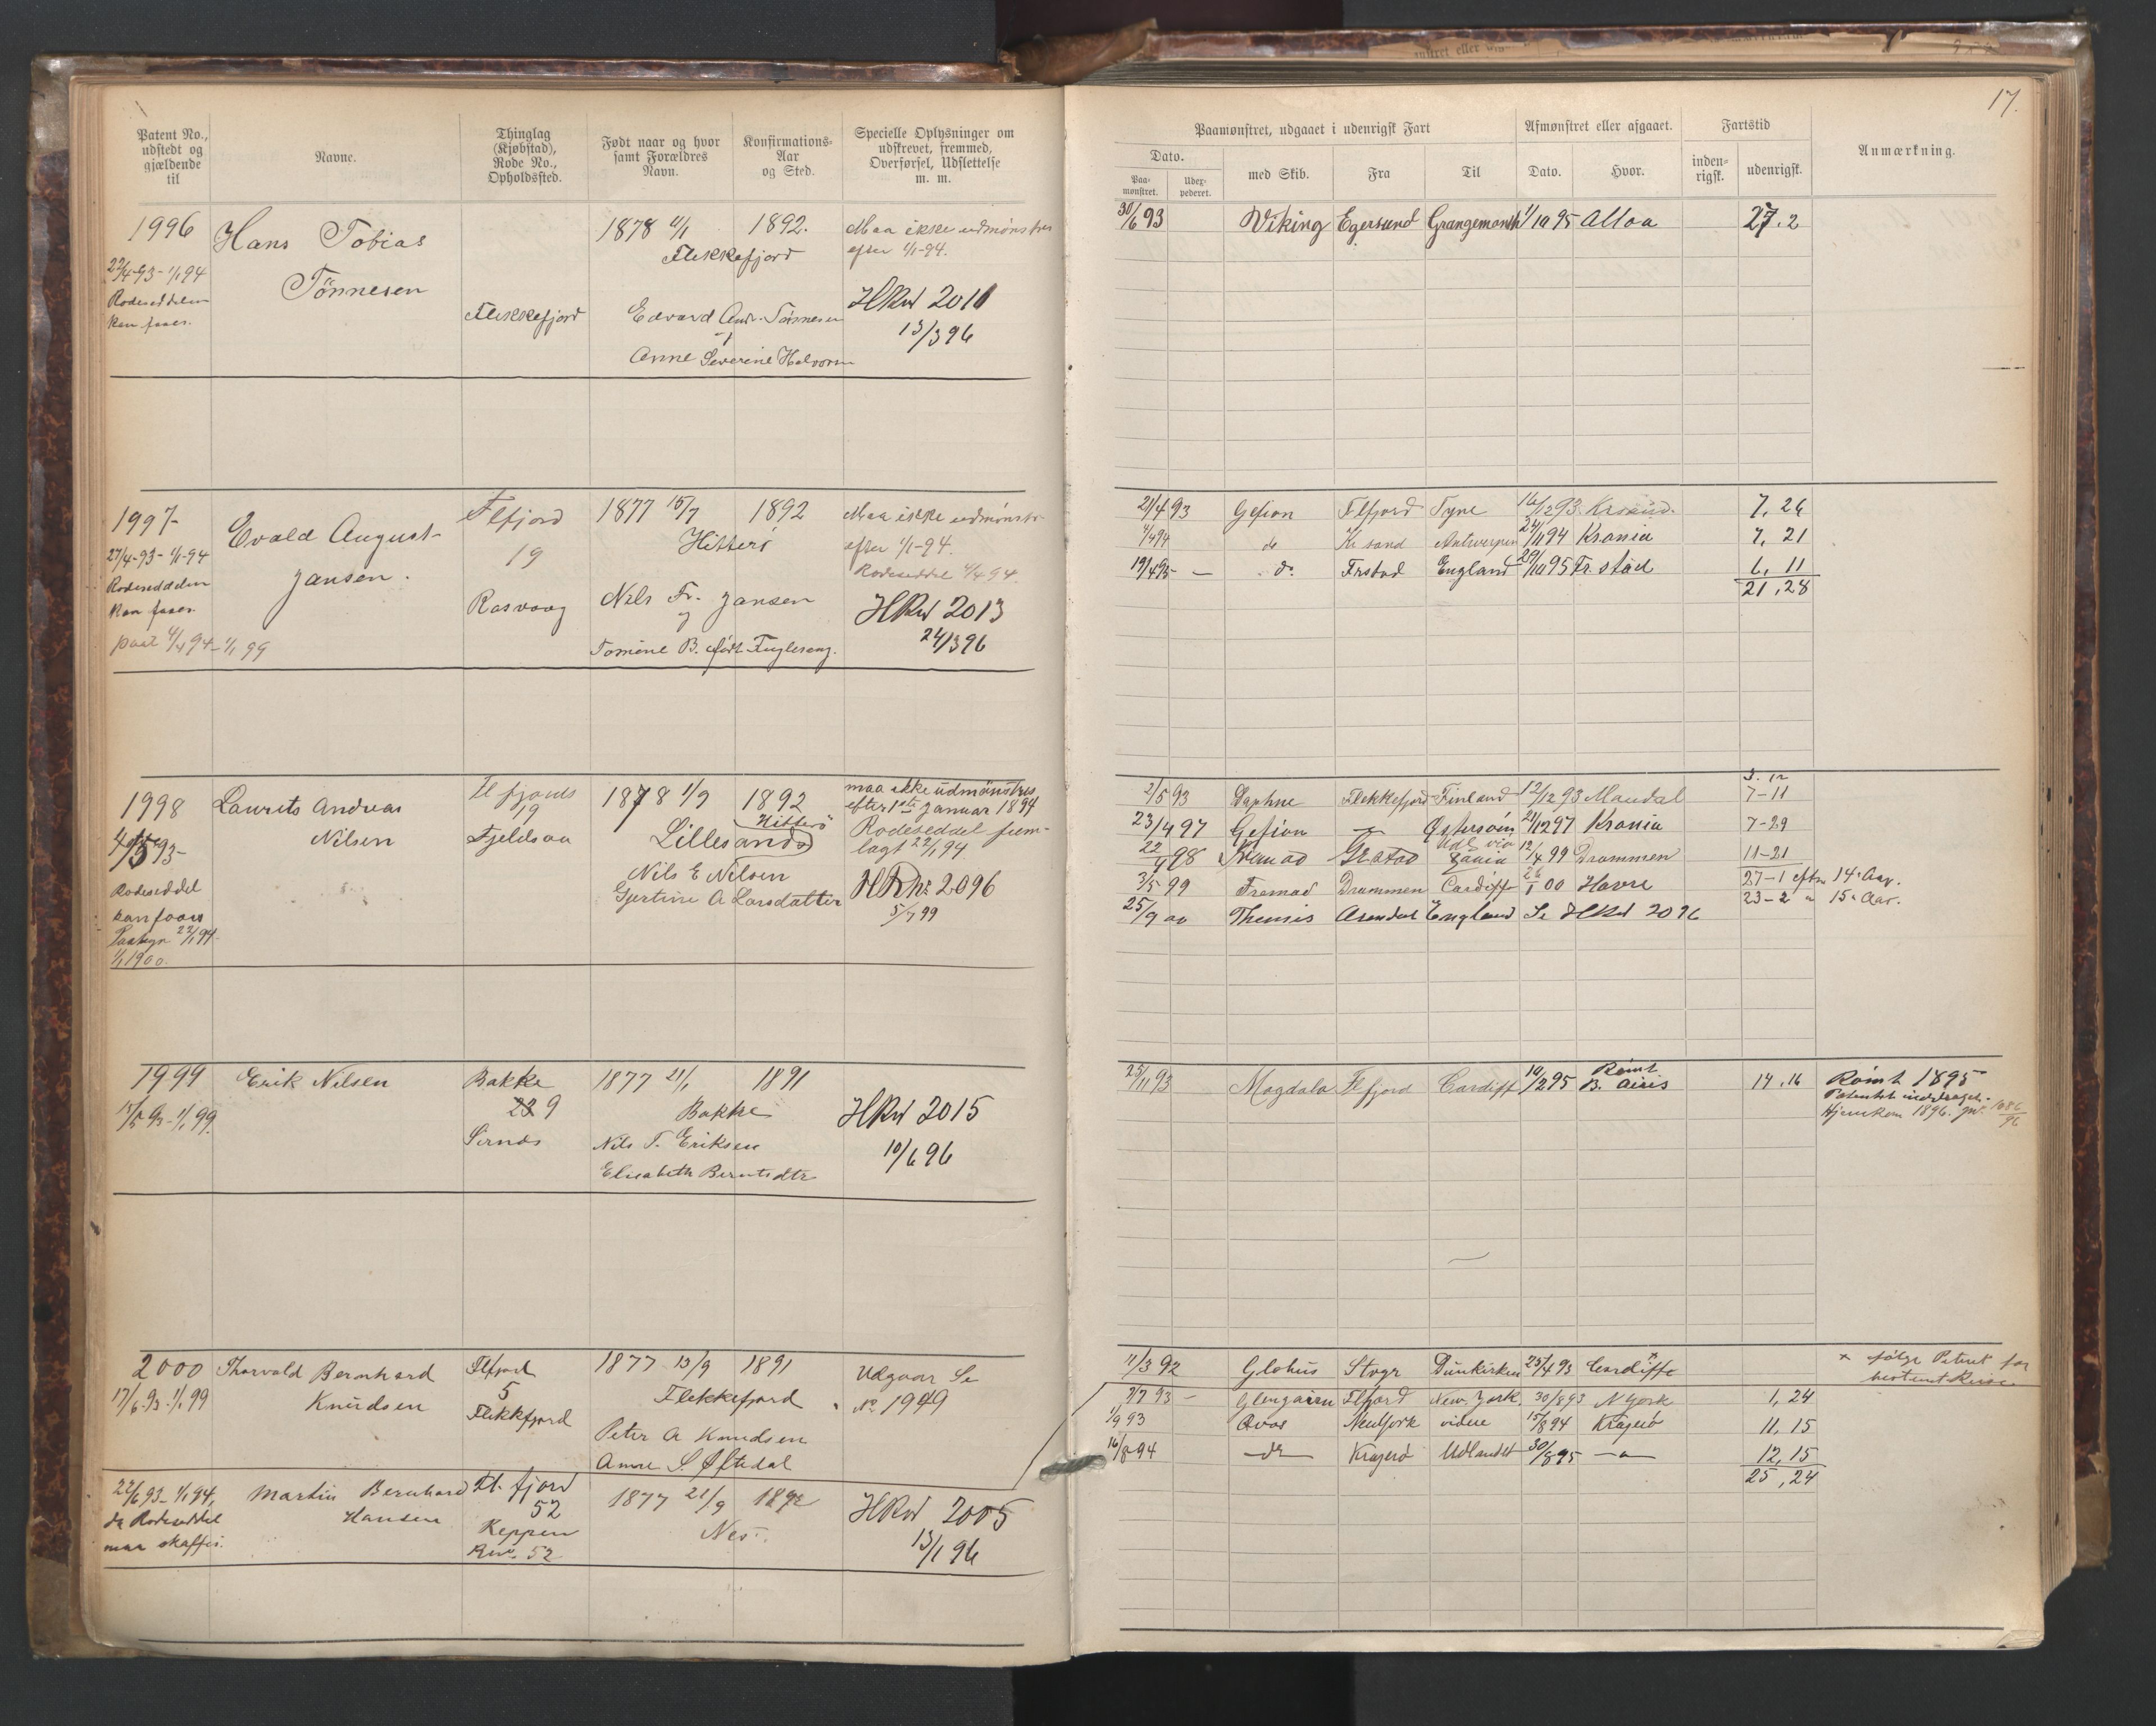 17.
Patent No., udstedt og gjældende til
Navne.
Thinglag (Kjøbstad), Rode No., Opholdssted.
Født naar og hvor samt Forældres Navn.
Konfirmations-Aar og Sted.
Specielle Oplysninger om udskrevet, fremmed, Overførsel, Udslettelse m. m.
Paamønstret, udgaaet i udenrigsk Fart
Afmønstret eller afgaaet.
Fartstid
Anmærkning.
Dato.
Paa-mønstret.
Udex-pederet.
med Skib.
Fra
Til
Dato.
Hvor.
inden-rigsk.
udenrigsk.
1996 Hans Tobias 1878 4/1 1892. Maa ikke udmønstres
Flekkefjord efter 1/1-94.
22/4-93-1/1 94
Rodeseddelen
kan faaes.
Tönnesen
Flekkefjord Edvard Andr. Tönnesen
Anne Severine Halvorsen
HRul 2011
13/3 96
30/6 93 Viking Egersund Grangemouth 1/10 95 Alloa 27.2
1997 Evald August Flfjord 1877 15/7 1892 Maa ikke udmønstr
27/4-93-1/1-94 Jansen. 19 Hitterö efter 1/1-94.
Rodeseddelen Rodeseddel 4/4 94.
kan faaes. Rasvaag Nils Fr. Jansen HRul 2013
og 24/3 96
paat 4/4 94-1/1 99 Tomine B. født Fuglevng.
21/4 93 Gefion Flfjord Tyne 16/12 93 Krsund. 7, 26
4/4 94 do Kr sand Antwerpen 24/11 94 Krania 7, 21
19/4 95 - do Frstad England 29/10 95 Fr. stad 6, 11
21, 28
1998 Laurits Andreas Fl fjords 1878 1/9 1892 maa ikke udmönstres
19 Hitterö efter 1ste Januar 1894
4/5 93- Nilsen Fjeldsaa Lillesand Rodeseddel frem-
lagt 22/1 94
Rodeseddel Nils E Nilsen HR No 2096
kan faaes Gjertine A Larsdatter 5/7 99
22/1 94-
1/1 1900.
2/5 93 Daphne Flekkefjord Finland 12/12 93 Mandal 7-11
23/4 97 Gefion Østersöen 21/12 97 Krania 7-29
22/4 98 12/4 99 Drammen 11-21
3/5 99 Fremad Drammen Cardiff 26/1 00 Havre 27-1 14. Aar.
25/9 00 Themis Arendal England Se HRul 2096 23-2 15. Aar.
1999 Erik Nilsen Bakke 1877 21/1 1891
9 Bakke HRul 2015
15/5 93-1/1 99. Sirnæs Nils T. Eriksen 10/6 96
Elisabeth Berntsdtr
25/11 93 Magdala Fl fjord Cardiff 10/2 95 Römt B. Aires 14.16 Römt 1895
Patentet inddraget.
Hjemkom 1896. jvr. 1686/96
2000 Thorvald Bernhard Flfjord 1877 13/9 1891 Udgaar Se
17/6-93-1/1 99 Knudsen 5 Flekkefjord No 1949
Flekkfjord Peter A Knudsen
Anne S. Øftedal
11/3 92 Globus Dünkirken 25/4 93 Cardiff x
x følge Patent for
bestemt Reise
7/7 93 - Glengairn Flfjord New York. 30/8 93 N York 1, 24
1/9 93 Newyork videre 15/8 94 Kragerö 11, 15
16/8 94 do Kragerö Udlandet 30/8 95 -"- 12, 15
25, 24
22/6 93-1/1 94, Martin Bernhard Fl. fjord 1877 21/9 1892 HRul 2005
da Rodeseddel Hansen 52 Nes. 13/1 96
maa skaffes. Keppen
52